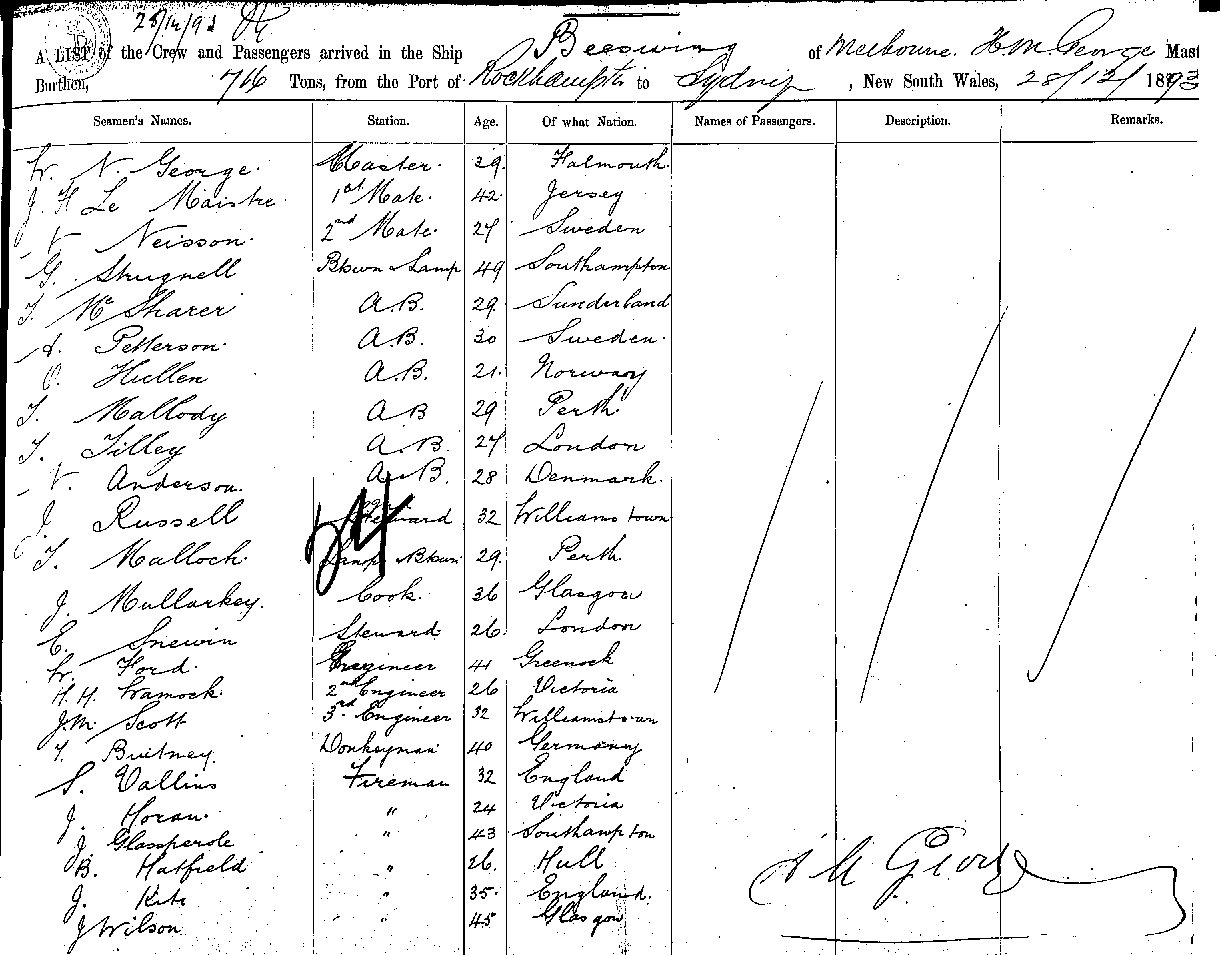 28/12/93
A LIST of the Crew and Passengers arrived in the Ship Beeswing of Melbourne. H. M. George Mast
Burthen, 766 Tons, from the Port of Rockhampton to Sydney, New South Wales, 28/12/1893
Seamen's Names. Station. Age. Of what Nation. Names of Passengers. Description. Remarks.
W. N. George. Master. 39. Falmouth.
J. H Le Maistre. 1st Mate. 42. Jersey
V Neisson. 2nd Mate. 27 Sweden
G. Strugnell Btswn & Lamp 49 Southampton
T. McSharer A.B. 29. Sunderland
A. Petterson. A.B. 30 Sweden.
O. Hullen A.B. 21. Norway
T. Mallody A B 29 Perth
T. Tilley A.B. 27 London
V. Anderson. A.B. 28 Denmark.
J. Russell 32 Williamstown
T. Malloch. Lamps & Btswn 29. Perth
J. Mullarkey. Cook. 36 Glasgow
E. Snewin Steward 26. London
W. Ford. Engineer 41 Greenock
H. H. Wamock. 2nd Engineer 26 Victoria
J.M. Scott 3rd Engineer 32 Williamstown
T. Buitney. Donkeyman 40 Germany
S. Vallins Fireman 32 England
J. Horan. " 24 Victoria
J Glasspoole " 43 Southampton
B. Hatfield " 26. Hull
J. Kite " 35. England.
J Wilson " " 45 Glasgow
H M George